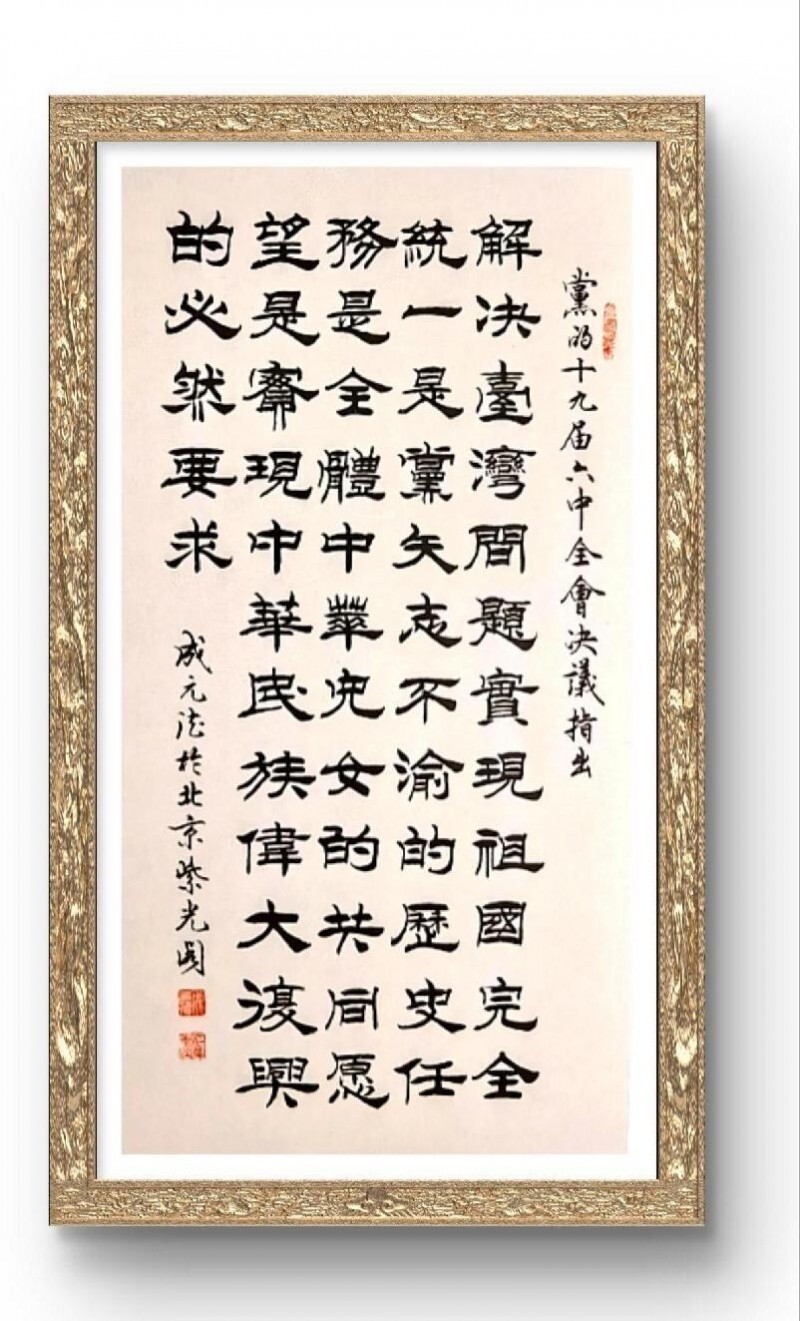 黨的十九届六中全會决議指出
解决臺灣問題實現祖國完全
統一是黨矢志不渝的歷史任
務是全體中華兒女的共同愿
望是實現中華民族偉大復興
的必然要求
成元法於北京紫光園